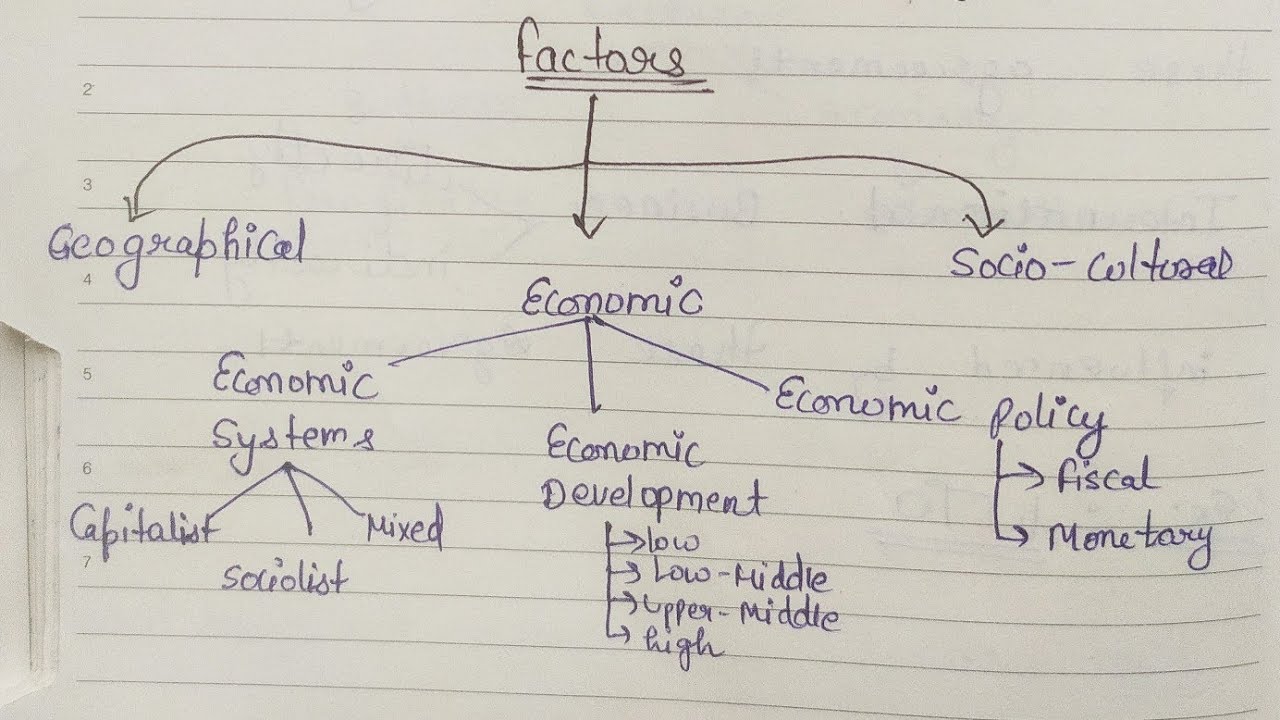 Factors
2
3
Geographical
Socio-Cultural
4
Economic
5
Economic
Systems
Economic Policy
Economic
Development
Fiscal
Monetary
6
Capitalist
Mixed
Sociolist
7
low
Low-Middle
Upper-Middle
high